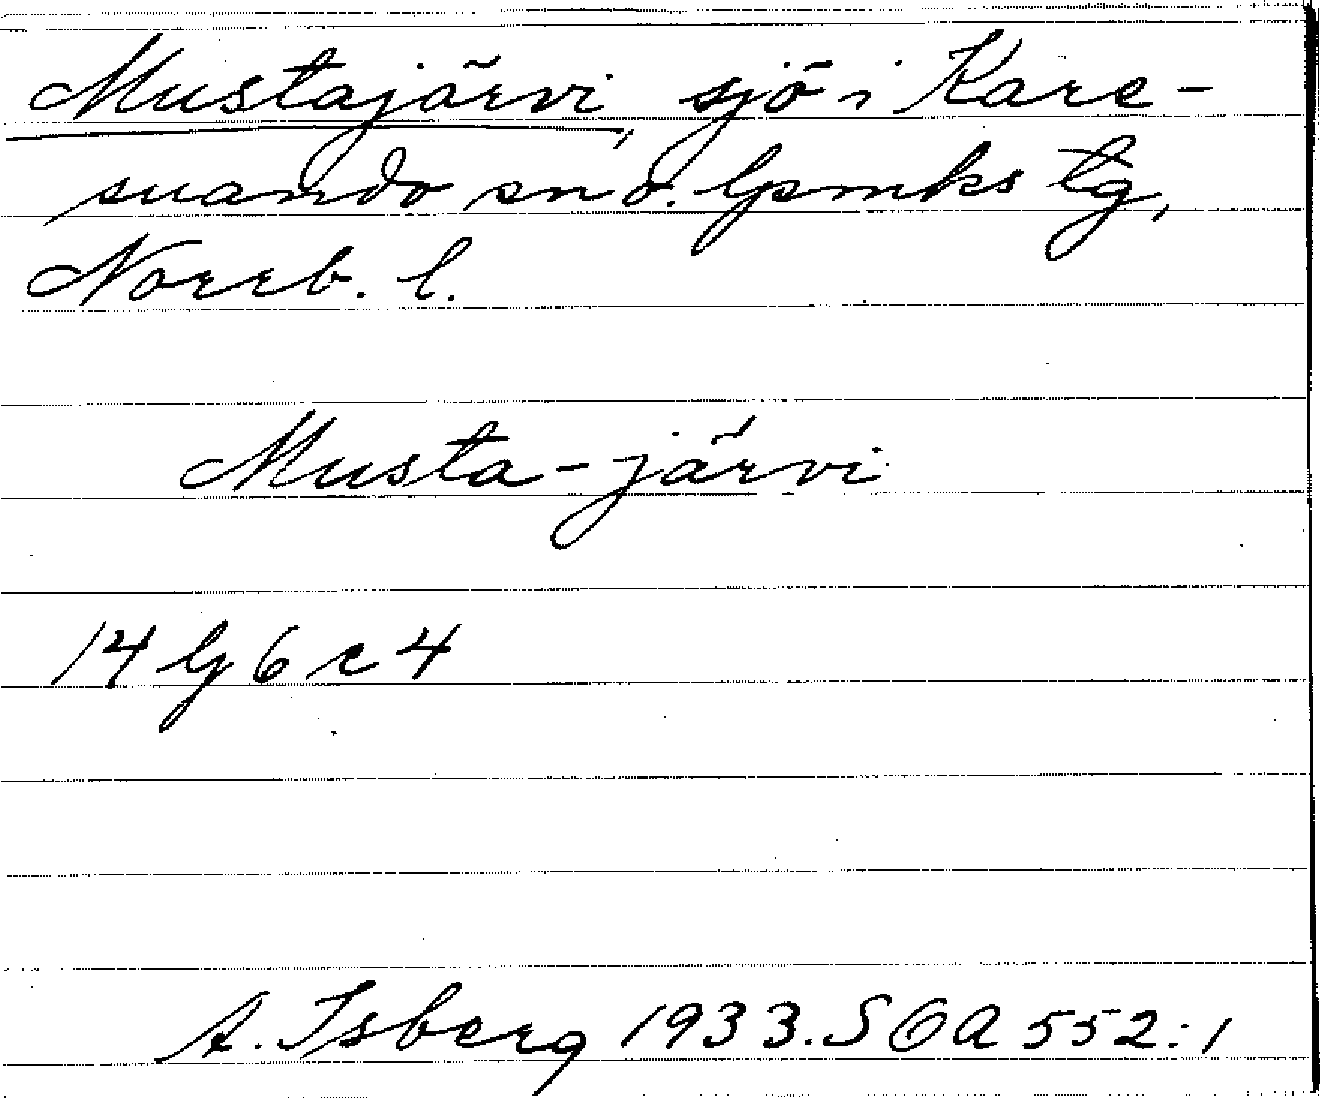 Mustajärvi, sjö i Kare-
suando sn o. lpmks tg,
Norrb. l.
Musta-järvi
14 lg 6 c 4
A. Isberg 1933. SOA 552:1